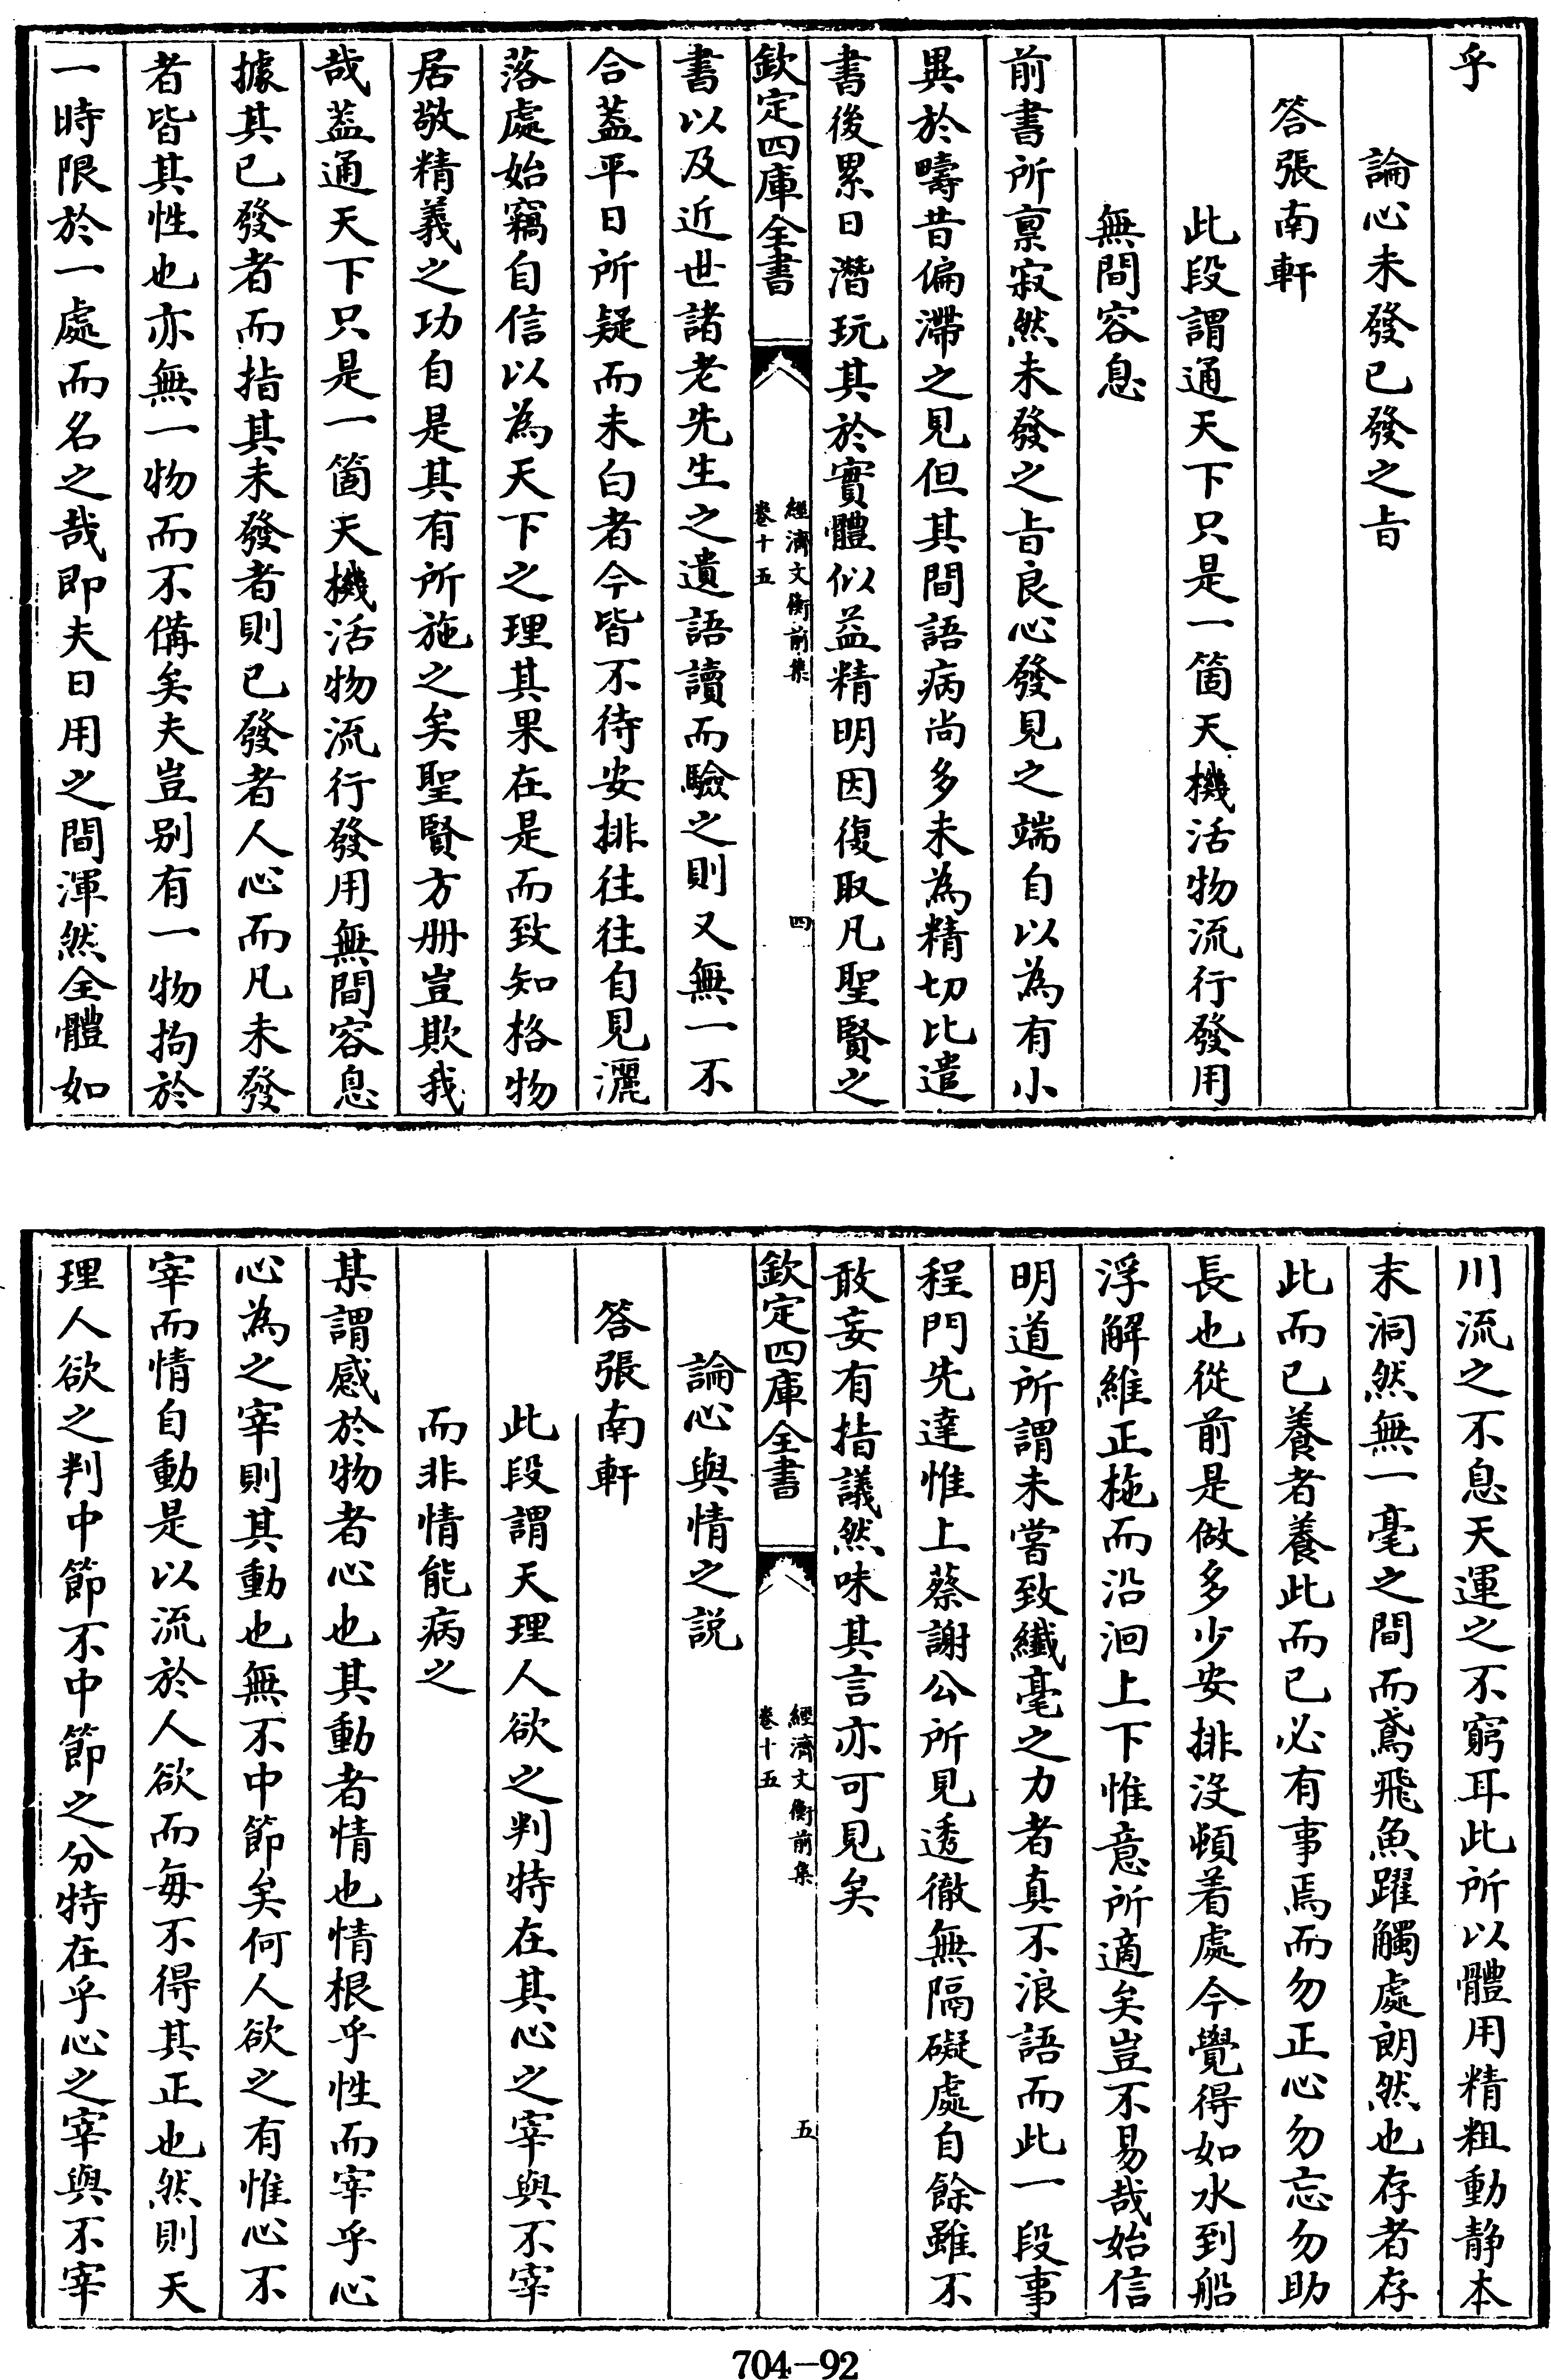 乎
論心未發已發之㫖
答張南軒
此段謂通天下只是一箇天機活物流行發用
無間容息
前書所稟寂然未發之㫖良心發見之端自以為有小
異於疇昔偏滯之見但其間語病尚多未為精切比遣
書後累日潛玩其於實體似益精明因復取凡聖賢之
欽定四庫全書
經濟文衡前集
卷十五
四
書以及近世諸老先生之遺語讀而驗之則又無一不
合葢平日所疑而未白者今皆不待安排往往自見灑
落處始竊自信以為天下之理其果在是而致知格物
居敬精義之功自是其有所施之矣聖賢方册豈欺我
哉葢通天下只是一箇天機活物流行發用無間容息
據其已發者而指其未發者則已發者人心而凡未發
者皆其性也亦無一物而不備矣夫豈别有一物拘於
一時限於一處而名之哉即夫日用之間渾然全體如
川流之不息天運之不窮耳此所以體用精粗動静本
末洞然無一毫之間而鳶飛魚躍觸處朗然也存者存
此而已養者養此而已必有事焉而勿正心勿忘勿助
長也從前是做多少安排没頓着處今覺得如水到船
浮解維正柂而沿洄上下惟意所適矣豈不易哉始信
明道所謂未嘗致纎毫之力者真不浪語而此一段事
程門先達惟上蔡謝公所見透徹無隔礙處自餘雖不
敢妄有指議然味其言亦可見矣
欽定四庫全書
經濟文衡前集
卷十五
五
論心與情之説
答張南軒
此段謂天理人欲之判特在其心之宰與不宰
而非情能病之
某謂感於物者心也其動者情也情根乎性而宰乎心
心為之宰則其動也無不中節矣何人欲之有惟心不
宰而情自動是以流於人欲而毎不得其正也然則天
理人欲之判中節不中節之分特在乎心之宰與不宰
704-92